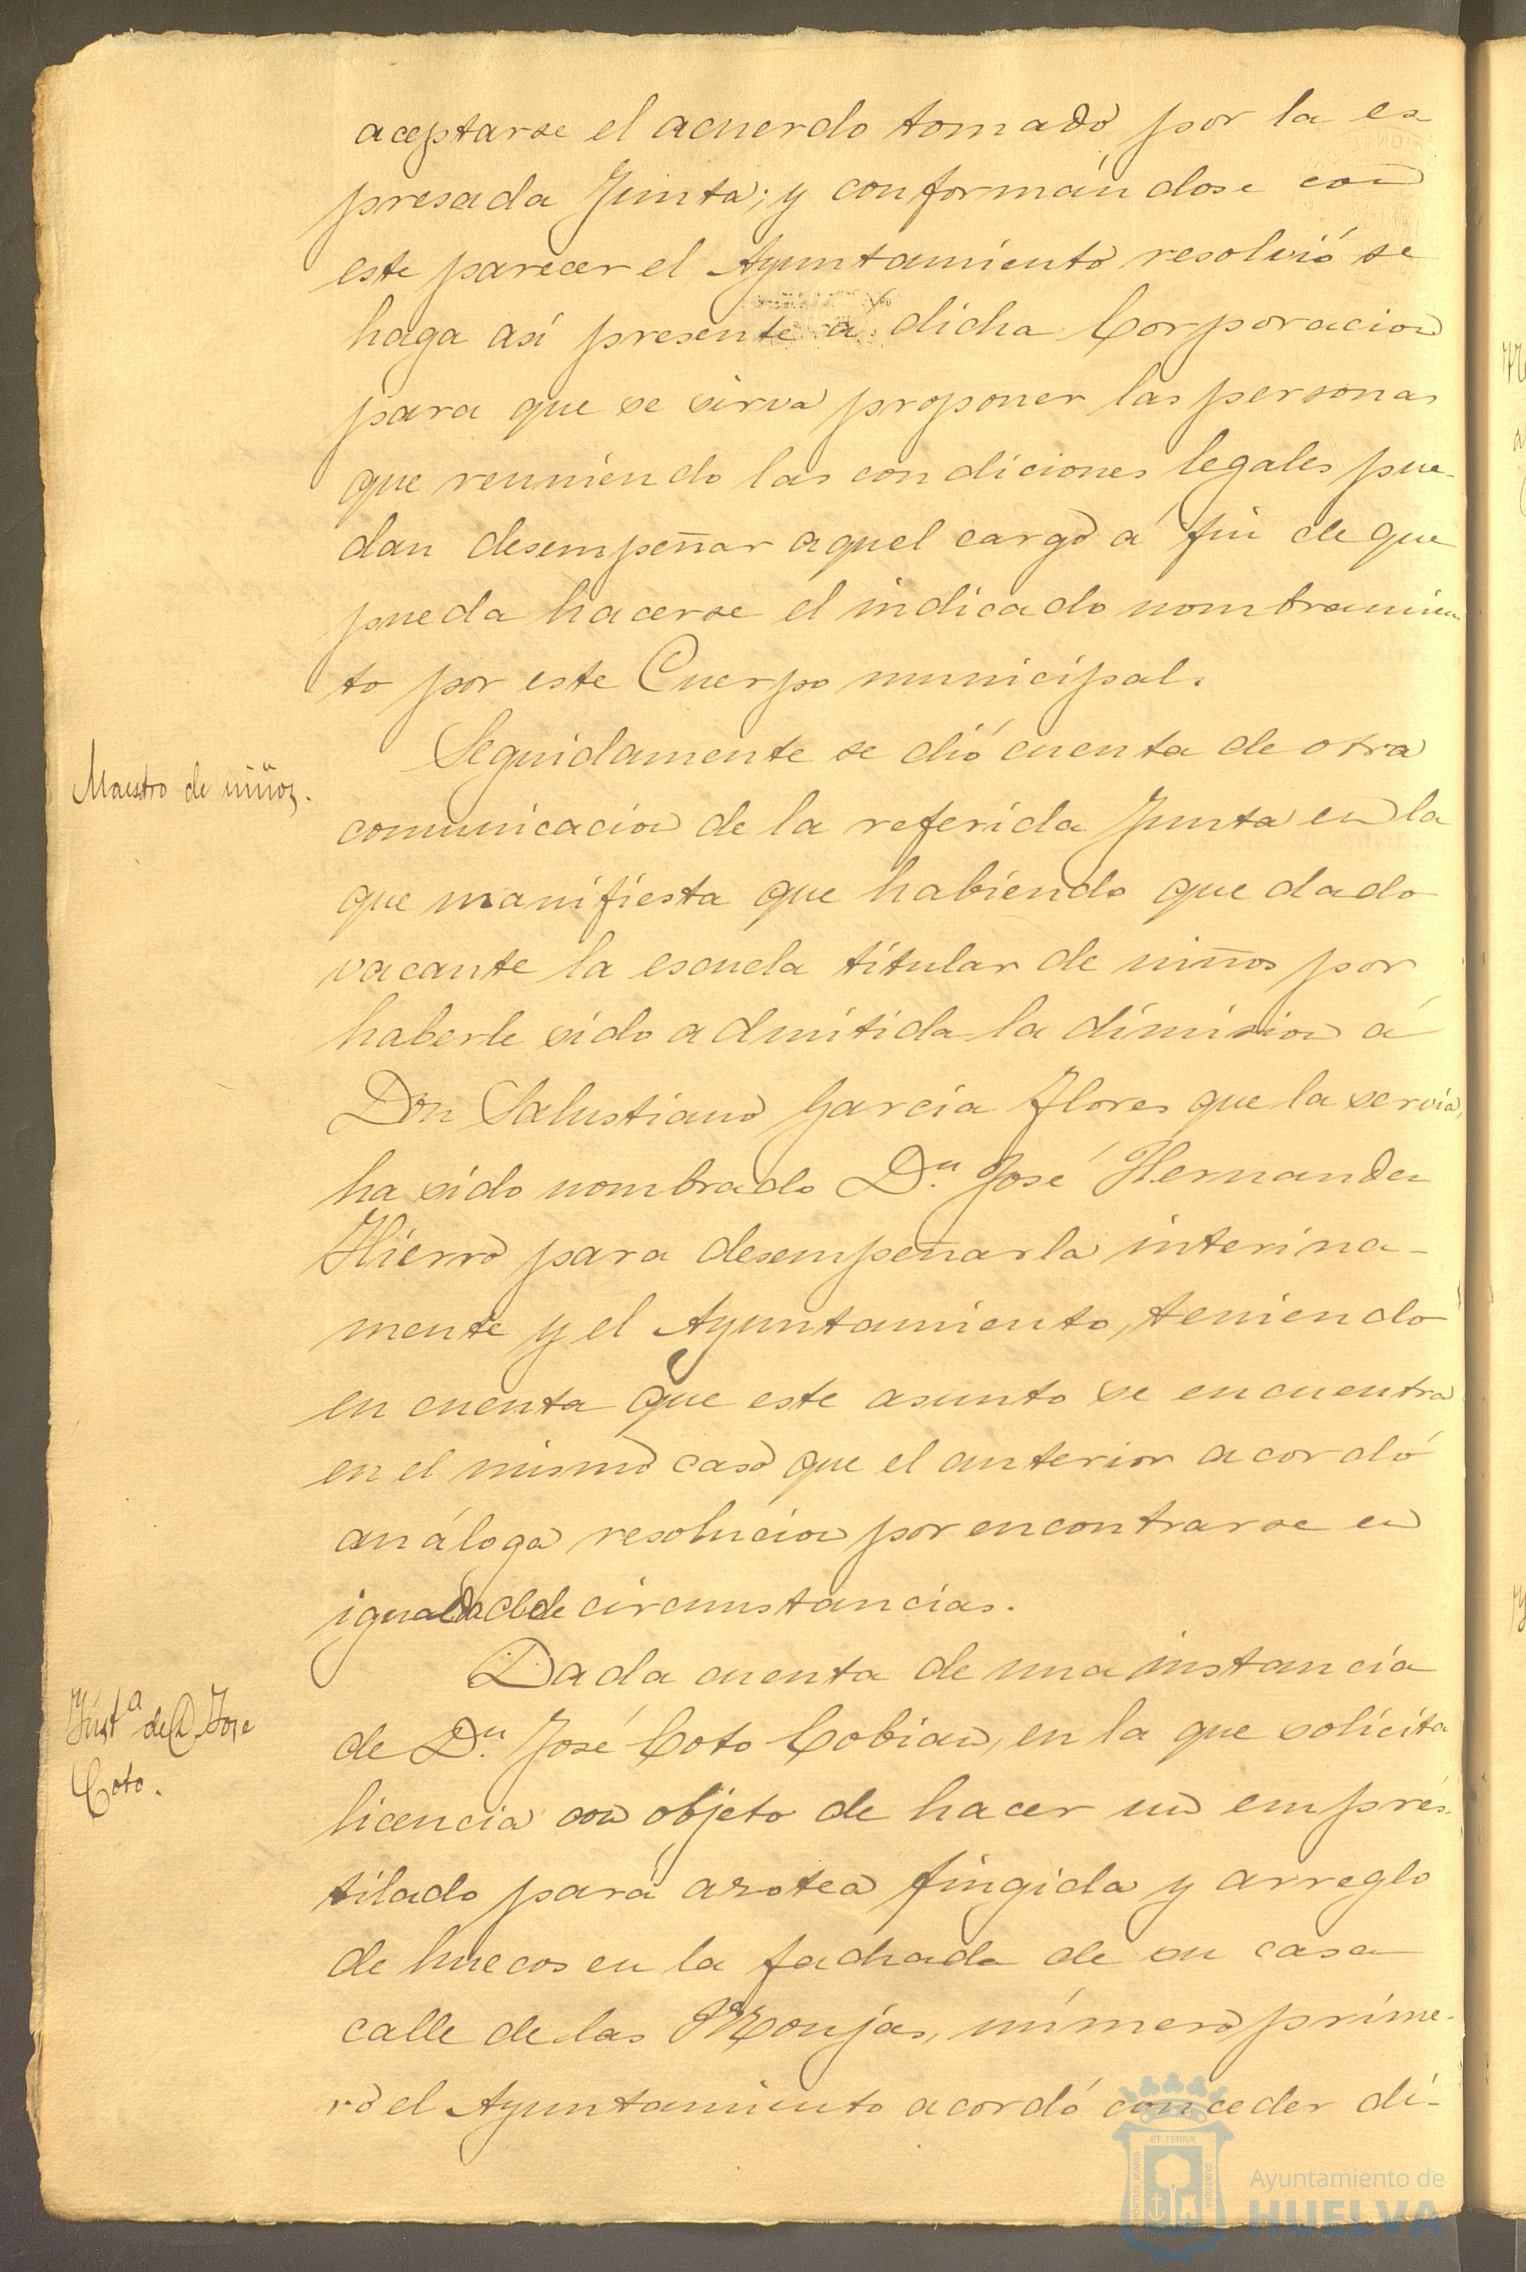 aceptarse el acuerdo tomado por la es
presada Junta; y conformándose con
este parecer el Ayuntamiento resolvió se
haga así presente á dicha Corporacion
para que se sirva proponer las personas
que reuniendo las condiciones legales pue-
dan desempeñar aquel cargo á fin de que
pueda hacerse el indicado nombramien
to por este Cuerpo municipal.
Maestro de niños.
Seguidamente se dió cuenta de otra
comunicacion de la referida Junta en la
que manifiesta que habiendo quedado
vacante la escuela titular de niños por
haberle sido admitida la dimision á
Don Salustiano Garcia Flores que la servia,
ha sido nombrado D.n José Hernandez
Hierro para desempeñarla interina-
mente y el Ayuntamiento, teniendo
en cuenta que este asunto se encuentra
en el mismo caso que el anterior acordó
análoga resolucion por encontrarse en
igualdad de circunstancias.
Inst.a de D. Jose
Coto.
Dada cuenta de una instancia
de D.n José Coto Cobian, en la que solicita
licencia con objeto de hacer un emprés-
tilado para azotea fingida y arreglo
de huecos en la fachada de su casa
calle de las Monjas, número prime-
ro el Ayuntamiento acordó conceder di-
PORTUS MARIS ET TERRÆ CUSTODIA
Ayuntamiento de
HUELVA